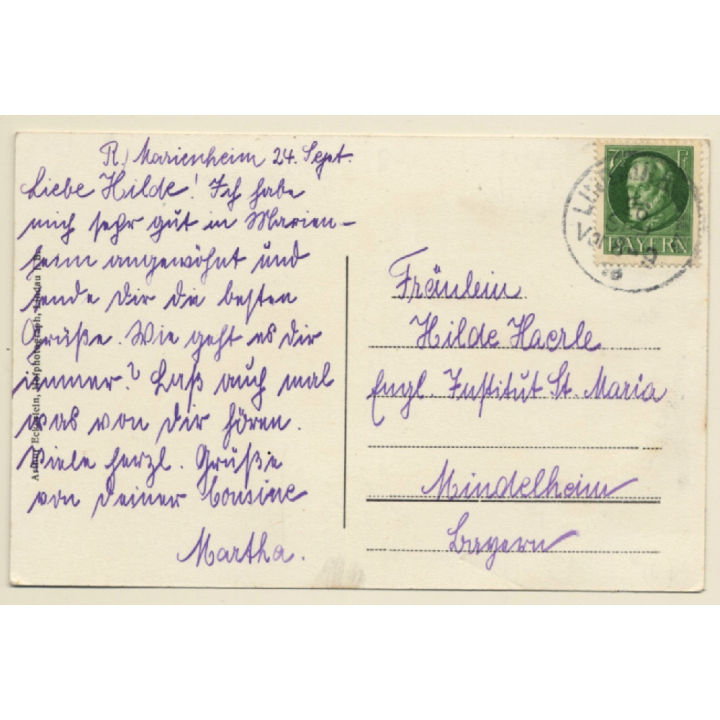 R. Marienheim 24. Sept.
Liebe Hilde! Ich habe
mich sehr gut in Marien-
heim angewöhnt und
sende Dir die besten
Grüße. Wie geht es Dir
immer? Laß auch mal
was von Dir hören.
Viele herzl. Grüße
von Deiner Cousine
Martha.
Fräulein
Hilde Haerle
Engl. Institut St. Maria
Mindelheim
Bayern
BAYERN
Hofphotograph, Lindau